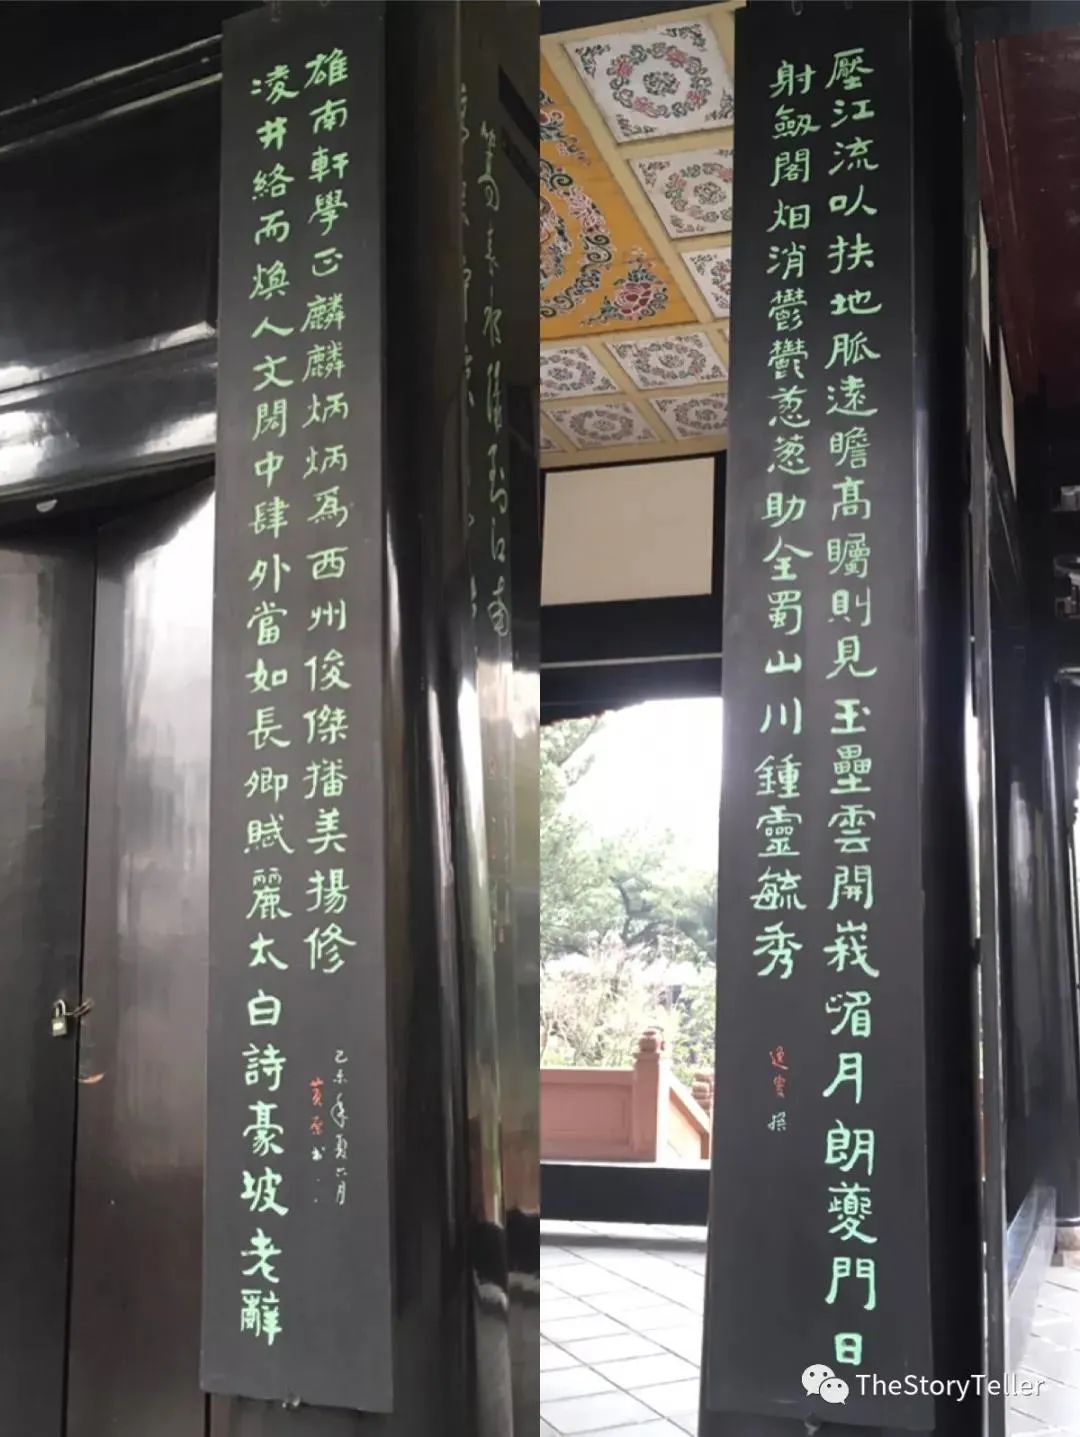 壓江流以扶地脈遠瞻高矚則見玉壘雲開峩嵋月朗夔門日
射劔閣烟消鬱鬱葱葱助全蜀山川鍾靈毓秀
撰
凌井絡而煥人文閎中肆外當如長卿賦麗太白詩豪坡老辭
雄南軒學正麟麟炳炳爲西州俊傑播美揚修
己未年夏六月
TheStoryTeller